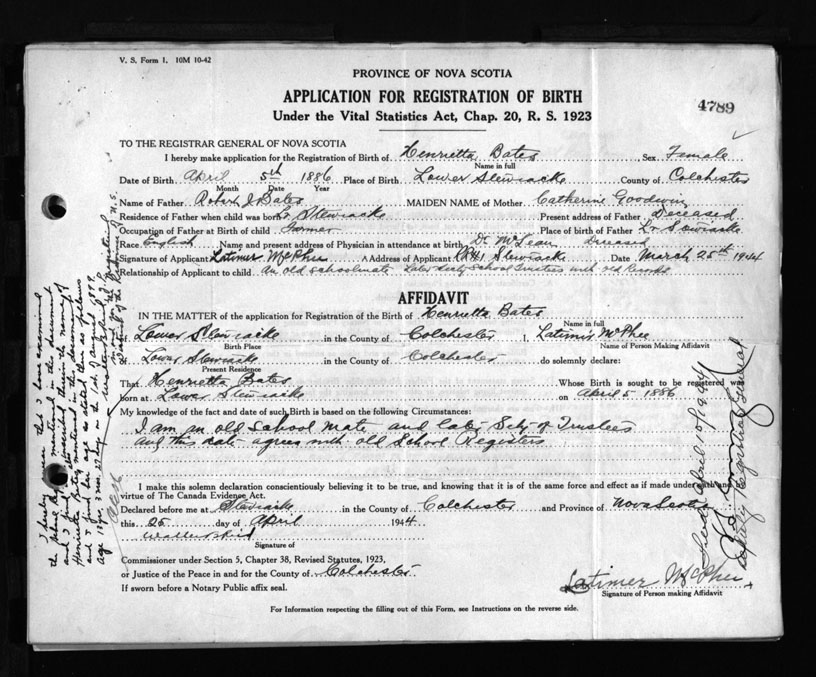 V. S. Form 1. 10M 10-42
PROVINCE OF NOVA SCOTIA
APPLICATION FOR REGISTRATION OF BIRTH
4789
Under the Vital Statistics Act, Chap. 20, R. S. 1923
TO THE REGISTRAR GENERAL OF NOVA SCOTIA
I hereby make application for the Registration of Birth of Henrietta Bates Sex Female
Name in full
Date of Birth April 5th 1886 Place of Birth Lower Stewiacke County of Colchester
Month Date Year
Name of Father Robert J Bates MAIDEN NAME of Mother Catherine Goodwin
Residence of Father when child was born Lr Stewiacke Present address of Father Deceased
Occupation of Father at Birth of child Farmer Place of birth of Father Lr Stewiacke
Race English Name and present address of Physician in attendance at birth Dr McLean deceased
Signature of Applicant Latimer McPhee Address of Applicant Stewiacke Date March 25th 1944
Relationship of Applicant to child An old schoolmate Later Secty School Trustees with old Records
AFFIDAVIT
IN THE MATTER of the application for Registration of the Birth of Henrietta Bates
Name in full
Lower Stewiacke in the County of Colchester I, Latimer McPhee
Birth Place Name of Person Making Affidavit
of Lower Stewiacke in the County of Colchester do solemnly declare:
Present Residence
That Henrietta Bates Whose Birth is sought to be registered was
born at Lower Stewiacke on April 5 1886
My knowledge of the fact and date of such Birth is based on the following Circumstances:
I am an old School mate and late Secty of Trustees
and this date agrees with old School Registers
I make this solemn declaration conscientiously believing it to be true, and knowing that it is of the same force and effect as if made under oath and
virtue of The Canada Evidence Act.
Declared before me at Stewiacke in the County of Colchester and Province of Nova Scotia
this 25 day of April 1944
Signature of
Commissioner under Section 5, Chapter 38, Revised Statutes, 1923,
or Justice of the Peace in and for the County of Colchester
If sworn before a Notary Public affix seal.
Latimer McPhee
Signature of Person making Affidavit
For Information respecting the filling out of this Form, see Instructions on the reverse side.
I hereby certify that I have examined
the School Register mentioned in this document
and I find described therein the name of
Henrietta Bates
and I find her age as stated
age 13 yrs 3 mos 27 days on the 1st of August 1899
Deputy Registrar General